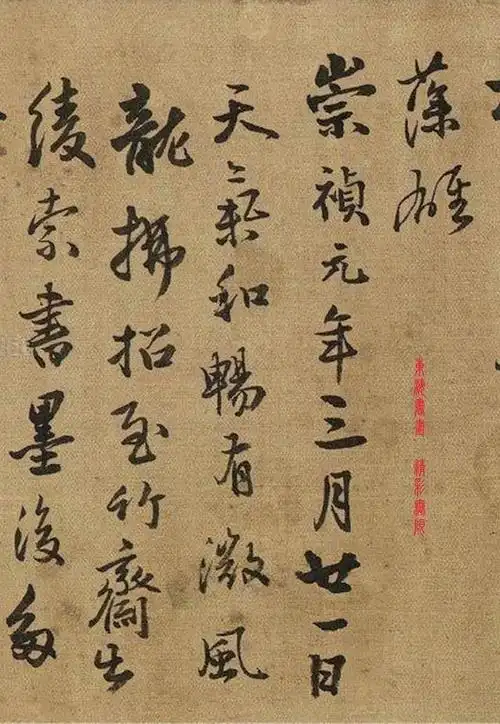 崇禎元年三月廿一日
天氣和暢有微風
龍拂招至竹齋出
綾索書墨多
書畫 精彩無限